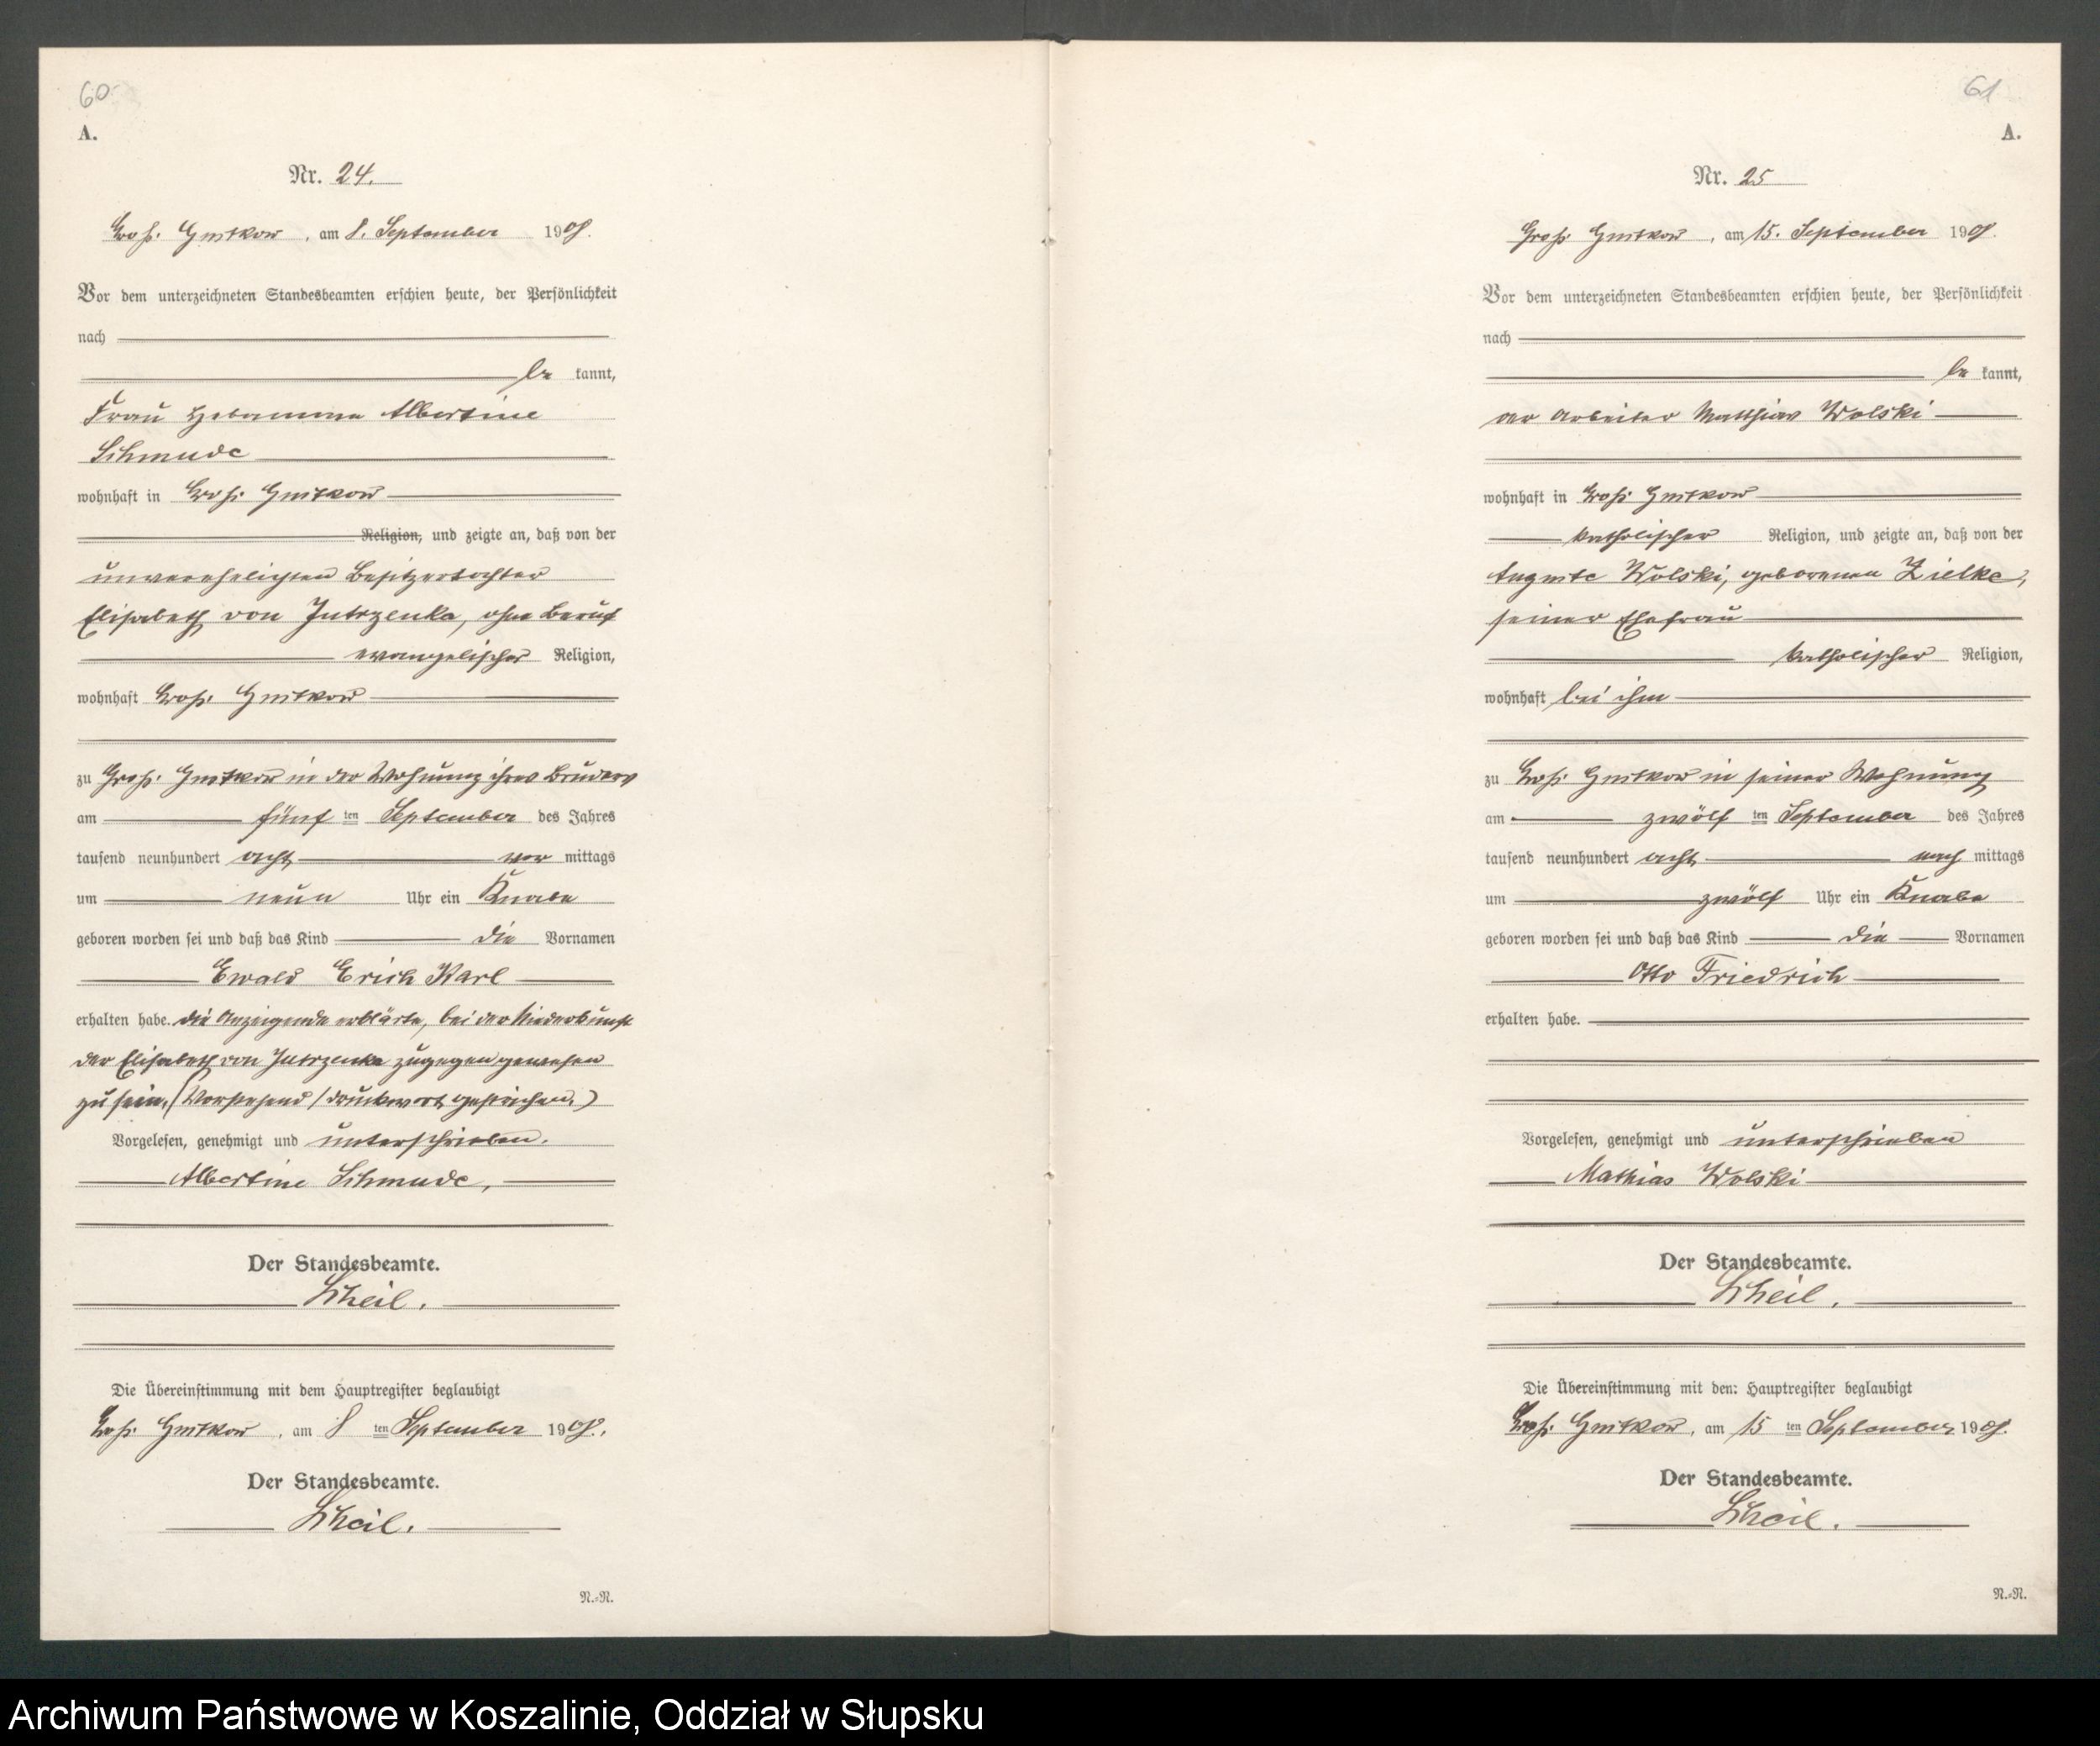 60
A.
Nr. 24.
Groß. Gustkow, am 8. September 1908.
Vor dem unterzeichneten Standesbeamten erschien heute, der Persönlichkeit
nach
be kannt,
Frau Hebamme Albertine
Schmude
wohnhaft in Groß. Gustkow
Religion, und zeigte an, daß von der
unverehelichten Besitzertochter
Elisabeth von Jutrzenka, ohne Beruf
evangelischer Religion,
wohnhaft Groß. Gustkow
zu Groß. Gustkow in der Wohnung ihres Bruders
am fünf ten September des Jahres
tausend neunhundert acht vor mittags
um neun Uhr ein Knabe
geboren worden sei und daß das Kind die Vornamen
Ewald Erich Karl
erhalten habe. Die Anzeigende erklärte, bei der Niederkunft
der Elisabeth von Jutrzenka zugegen gewesen
zu sein. (Vorstehend 1 Druckwort gestrichen.)
Vorgelesen, genehmigt und unterschrieben.
Albertine Schmude,
Der Standesbeamte.
Scheil.
Die Übereinstimmung mit dem Hauptregister beglaubigt
Groß. Gustkow, am 8 ten September 1908.
Der Standesbeamte.
Scheil.
N.=N.
61
A.
Nr. 25
Groß. Gustkow, am 15. September 1908.
Vor dem unterzeichneten Standesbeamten erschien heute, der Persönlichkeit
nach
be kannt,
der Arbeiter Matthias Wolski
wohnhaft in Groß. Gustkow
katholischer Religion, und zeigte an, daß von der
Auguste Wolski, geborenen Zielke,
seiner Ehefrau
katholischer Religion,
wohnhaft bei ihm
zu Groß. Gustkow in seiner Wohnung
am zwölf ten September des Jahres
tausend neunhundert acht nach mittags
um zwölf Uhr ein Knabe
geboren worden sei und daß das Kind die Vornamen
Otto Friedrich
erhalten habe.
Vorgelesen, genehmigt und unterschrieben
Mathias Wolski
Der Standesbeamte.
Scheil.
Die Übereinstimmung mit dem Hauptregister beglaubigt
Groß. Gustkow, am 15 ten September 1908.
Der Standesbeamte.
Scheil.
N.=N.
Archiwum Państwowe w Koszalinie, Oddział w Słupsku